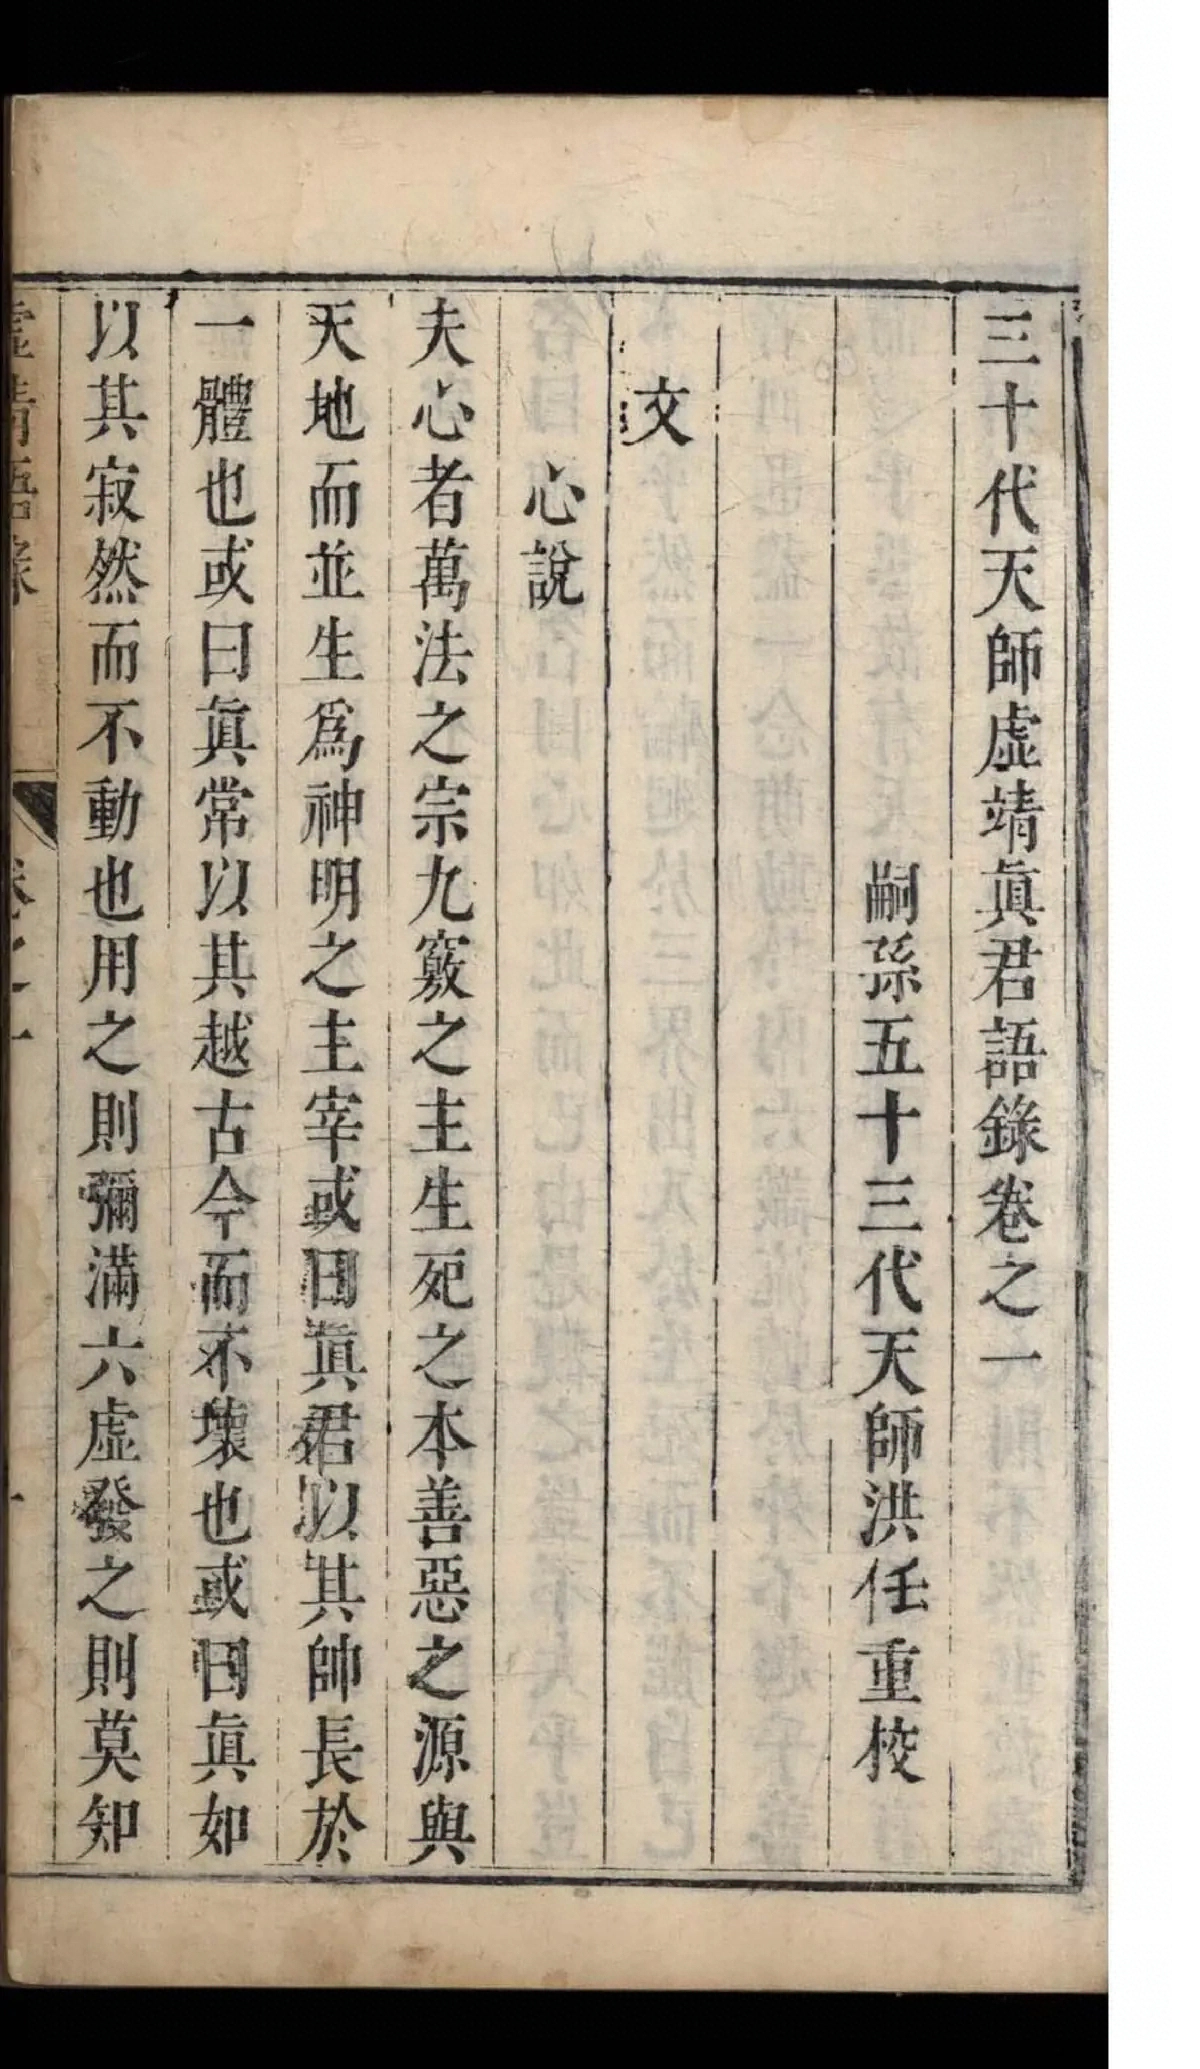 三十代天師虛靖眞君語錄卷之一
嗣孫五十三代天師洪任重校
文
心說
夫心者萬法之宗九竅之主生死之本善惡之源與
天地而並生爲神明之主宰或曰眞君以其帥長於
一體也或曰眞常以其越古今而不壞也或曰眞如
以其寂然而不動也用之則彌滿六虛發之則莫知